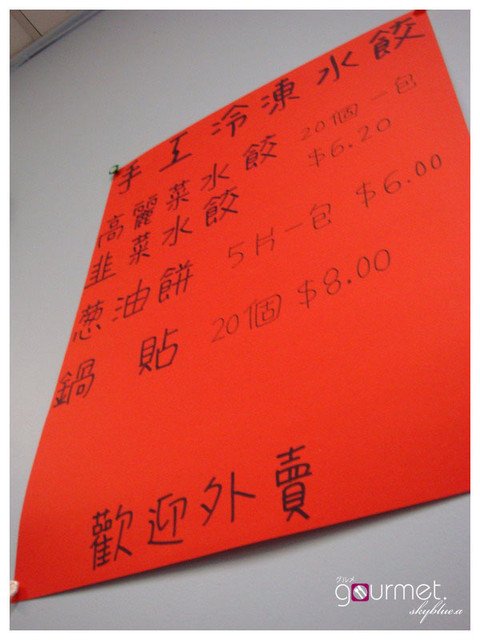 手工冷凍水餃
高麗菜水餃 20個一包
韭菜水餃 $6.20
蔥油餅 5片一包 $6.00
鍋貼 20個 $8.00
歡迎外賣
グルメ
gourmet.
skyblue.a